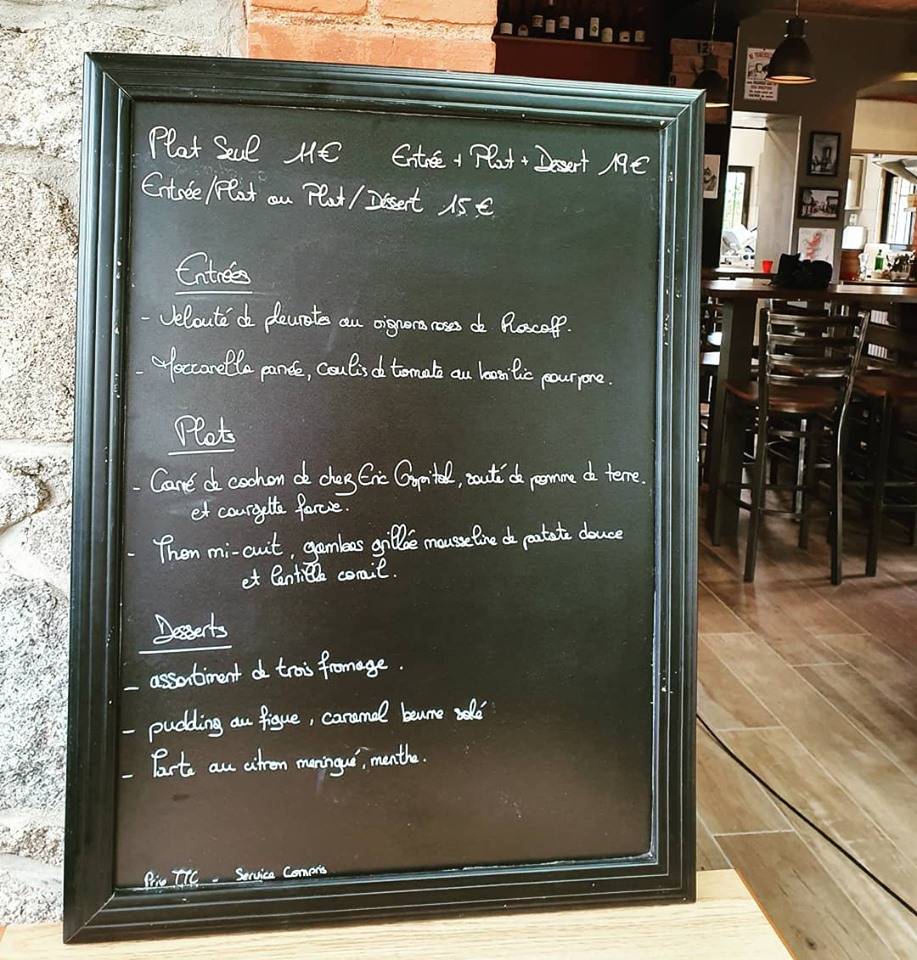 Plat Seul 11€ Entrée + Plat + Dessert 19€
Entrée/Plat ou Plat/Déssert 15€
Entrées
- Velouté de pleurotes au oignons roses de Roscoff.
- Mozzarella panée, coulis de tomate au basilic pourpre.
Plats
- Carré de cochon de chez Eric Ospital, sauté de pomme de terre.
et courgette farcie.
- Thon mi-cuit, gambas grillée mousseline de patate douce
et lentille corail.
Desserts
- assortiment de trois fromage.
- pudding au figue, caramel beurre salé
- Tarte au citron meringué, menthe.
Prix TTC - Service Compris
12